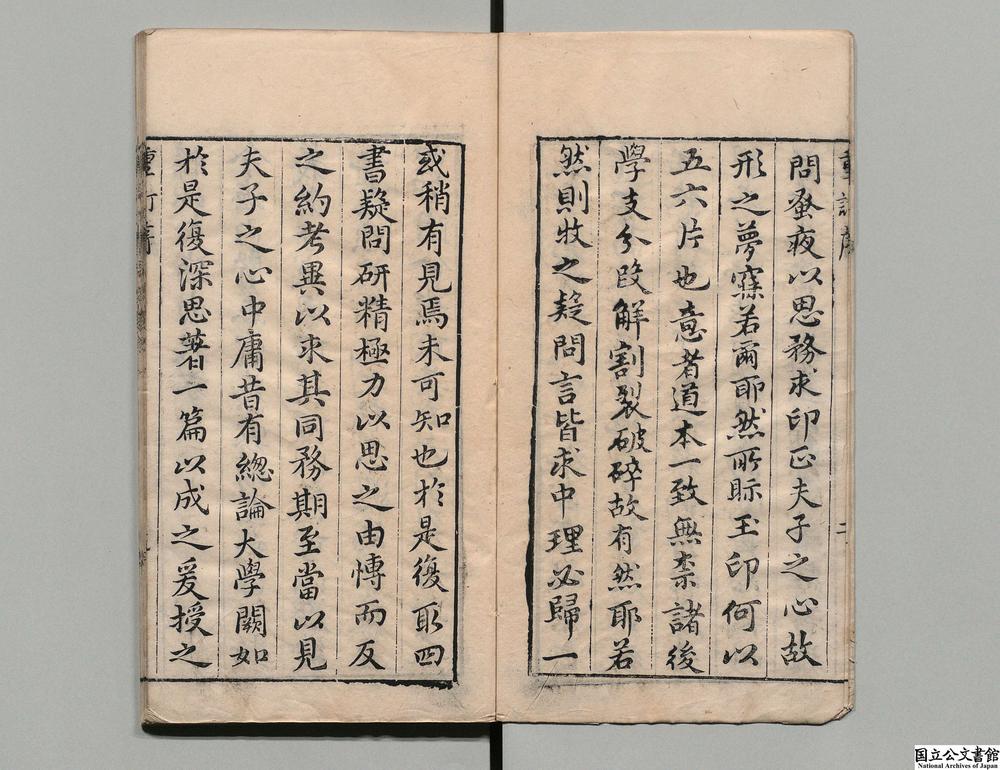 重訂序
二
問蚤夜以思務求印正夫子之心故
形之夢寐若爾耶然所眎玉印何以
五六片也意者道本一致無柰諸後
學支分段解割裂破碎故有然耶若
然則牧之疑問言皆求中理必歸一
或稍有見焉未可知也於是復取四
書疑問研精極力以思之由慱而反
之約考異以求其同務期至當以見
夫子之心中庸昔有總論大學闕如
於是復深思著一篇以成之爰授之
重訂序
国立公文書館
National Archives of Japan